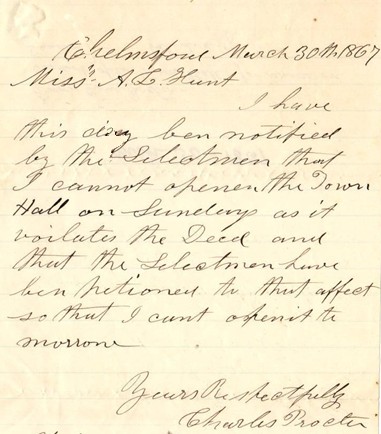 Chelmsford March 30th 1867
Miss A. L. Hunt
I have
this day ben notified
by the Selectmen that
I cannot openen the Town
Hall on Sundays as it
voilates the Deed and
that the Selectmen have
ben petioned to that affect
so that I cant open it to
morrone
Yours Respectfully
Charles Procter